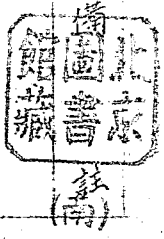 北京
圖書
館藏
註
(南)